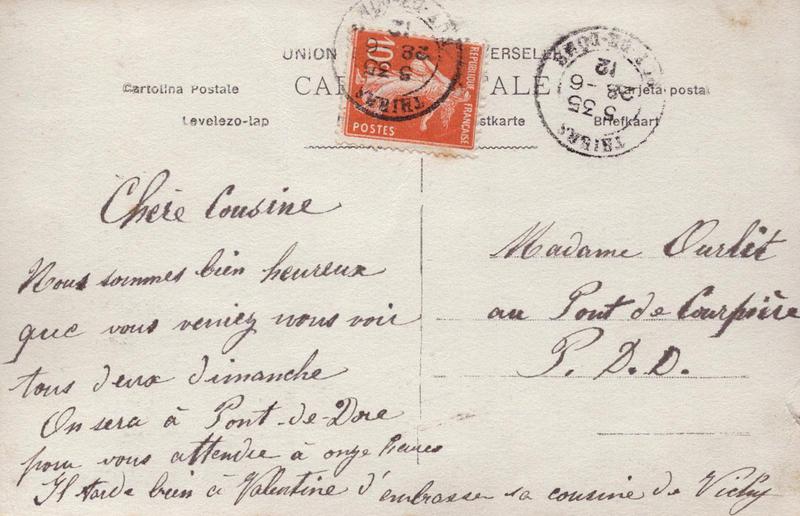 UNION VERSELLE
CA ALE
Cartolina Postale
arjeta postal
Levelezo-lap
stkarte
Briefkaart
10c
REPUBLIQUE FRANÇAISE
POSTES
THIERS
5 35
28 6
12
PUY-DE-DOME
THIERS
5 35
28 -6
12
PUY-DE-DOME
Chère Cousine
Nous sommes bien heureux
que vous veniez nous voir
tous deux dimanche
On sera à Pont-de-Dore
pour vous attendre à onze heures
Il tarde bien à Valentine d'embrasser sa cousine de Vichy
Madame Ourlet
au Pont de Courpière
P. D. D.